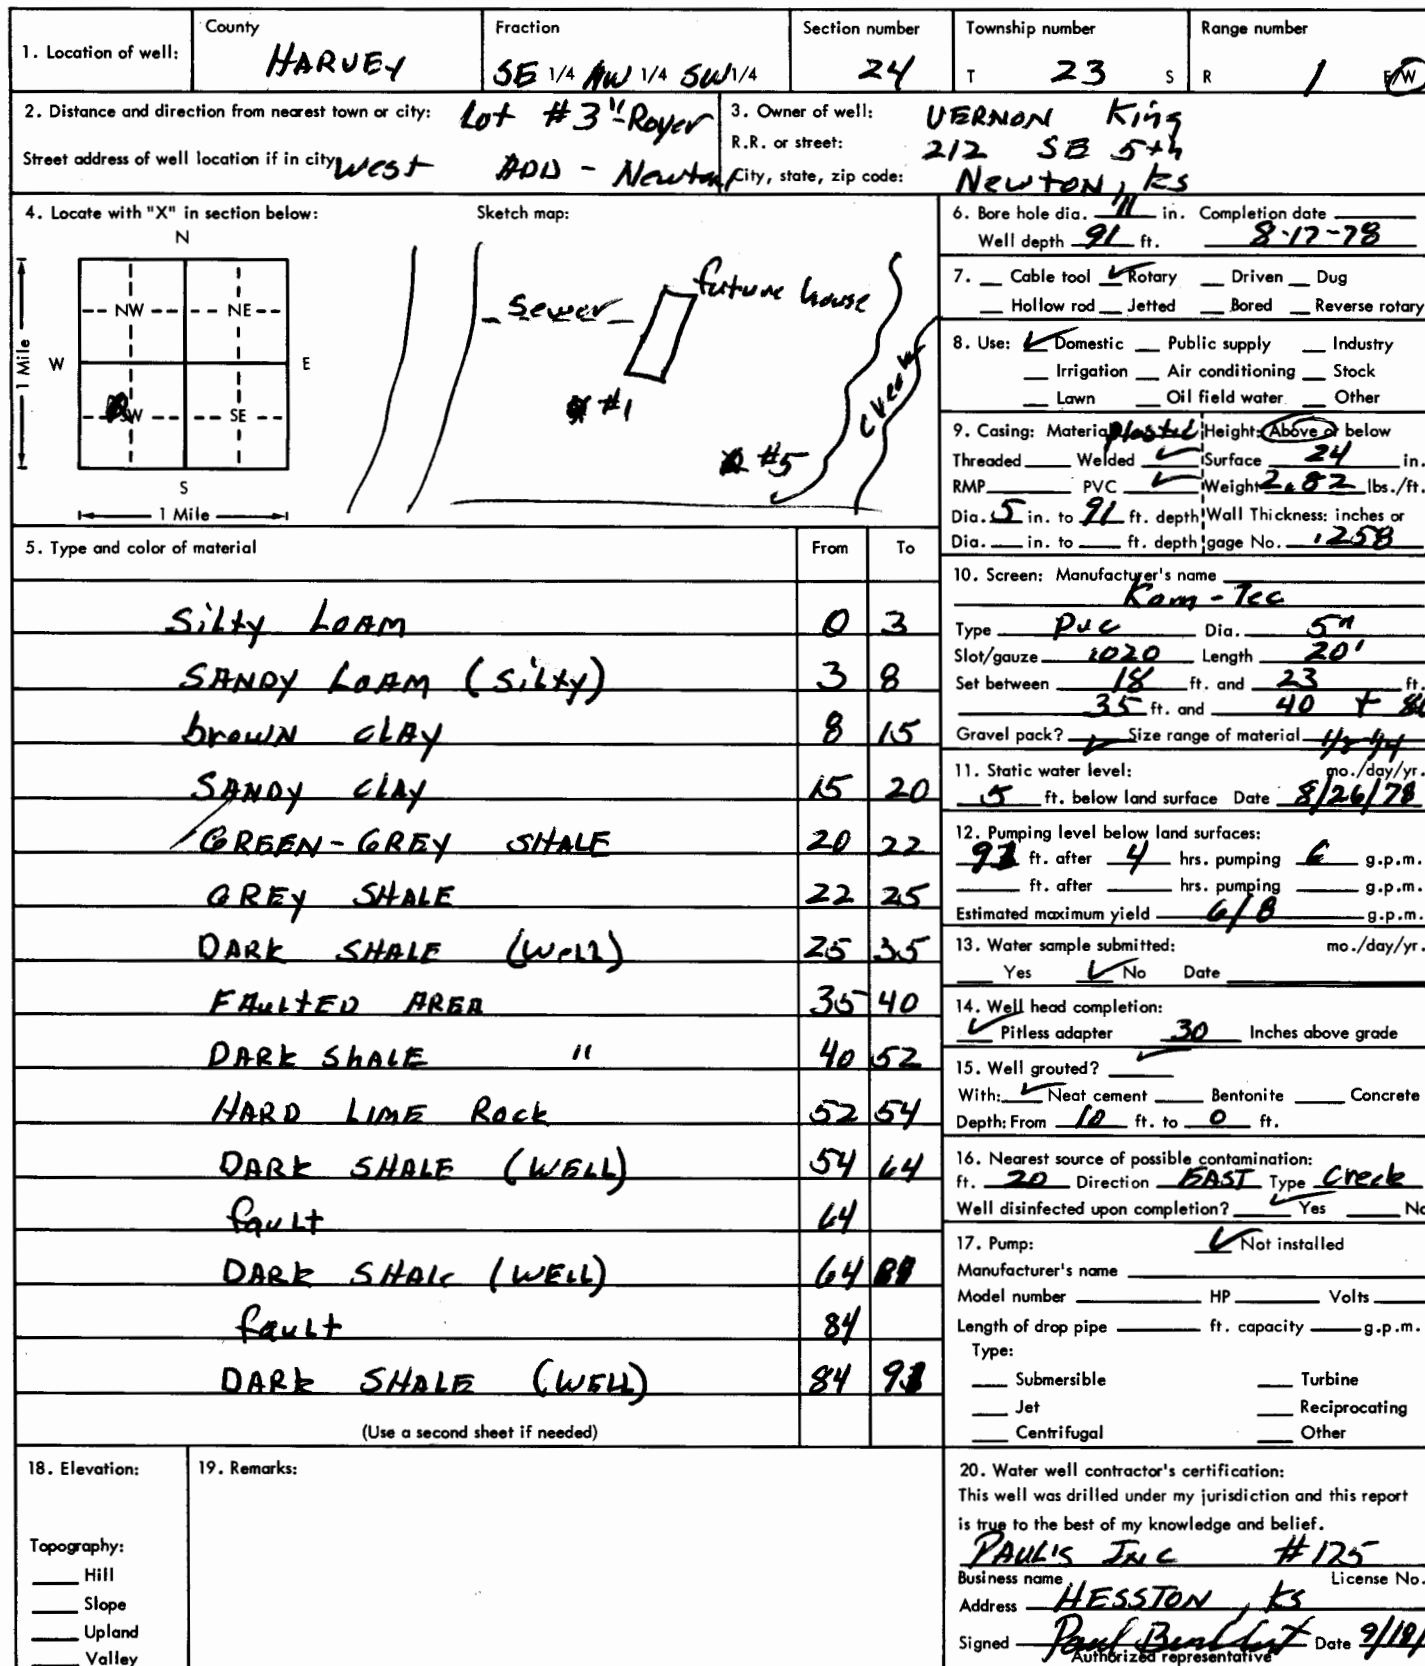 1. Location of well: County HARVEY Fraction SE 1/4 NW 1/4 SW 1/4 Section number 24 Township number T 23 S Range number R 1 E/W
2. Distance and direction from nearest town or city: Lot #3 "Royer
Street address of well location if in city: West ADD - Newton
3. Owner of well: VERNON King
R.R. or street: 212 SE 5th
City, state, zip code: Newton, Ks
4. Locate with "X" in section below:
N
NW NE
W E
SW SE
S
1 Mile
1 Mile
Sketch map:
Sewer
future house
#1
#5
Creek
5. Type and color of material From To
Silty LOAM 0 3
SANDY LOAM (Silty) 3 8
brown CLAY 8 15
SANDY CLAY 15 20
GREEN-GREY SHALE 20 22
GREY SHALE 22 25
DARK SHALE (Well) 25 35
FAULTED AREA 35 40
DARK SHALE " 40 52
HARD LIME Rock 52 54
DARK SHALE (WELL) 54 64
fault 64
DARK SHALE (WELL) 64
fault 84
DARK SHALE (WELL) 84
(Use a second sheet if needed)
6. Bore hole dia. 11 in. Completion date
Well depth 91 ft. 8-17-78
7. Cable tool Rotary Driven Dug
Hollow rod Jetted Bored Reverse rotary
8. Use: Domestic Public supply Industry
Irrigation Air conditioning Stock
Lawn Oil field water Other
9. Casing: Material Height: Above or below
Threaded Welded Surface 24 in.
RMP PVC Weight 2.82 lbs./ft.
Dia. 5 in. to 91 ft. depth Wall Thickness: inches or
Dia. in. to ft. depth gage No. .258
10. Screen: Manufacturer's name
Kom-Tec
Type PVC Dia. 5"
Slot/gauze .020 Length 20'
Set between 18 ft. and 23 ft.
35 ft. and 40 +
Gravel pack? Size range of material 1/8-1/4
11. Static water level: mo./day/yr.
5 ft. below land surface Date 8/26/78
12. Pumping level below land surfaces:
ft. after 4 hrs. pumping 6 g.p.m.
ft. after hrs. pumping g.p.m.
Estimated maximum yield 6/8 g.p.m.
13. Water sample submitted: mo./day/yr.
Yes No Date
14. Well head completion:
Pitless adapter 30 Inches above grade
15. Well grouted?
With: Neat cement Bentonite Concrete
Depth: From 10 ft. to 0 ft.
16. Nearest source of possible contamination:
ft. 20 Direction EAST Type Creek
Well disinfected upon completion? Yes No
17. Pump: Not installed
Manufacturer's name
Model number HP Volts
Length of drop pipe ft. capacity g.p.m.
Type:
Submersible Turbine
Jet Reciprocating
Centrifugal Other
18. Elevation:
Topography:
Hill
Slope
Upland
Valley
19. Remarks:
20. Water well contractor's certification:
This well was drilled under my jurisdiction and this report
is true to the best of my knowledge and belief.
PAUL'S INC #125
Business name License No.
Address HESSTON, KS
Signed Paul Date 9/18/
Authorized representative